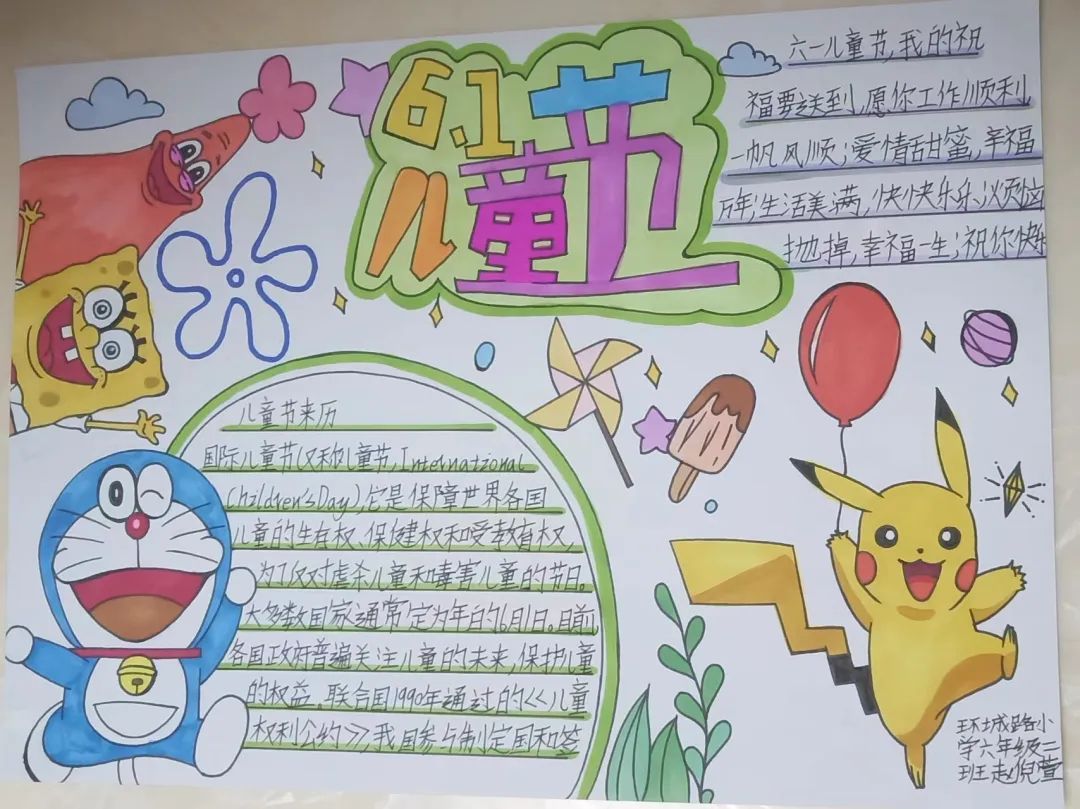 6.1
儿童节
六一儿童节,我的祝
福要送到,愿你工作顺利
一帆风顺;爱情甜蜜,幸福
万年;生活美满,快快乐乐;烦恼
抛掉,幸福一生;祝你快
儿童节来历
国际儿童节(又称儿童节,International
Children's Day),它是保障世界各国
儿童的生存权、保健权和受教育权,
为了反对虐杀儿童和毒害儿童的节日。
大多数国家通常定为年的6月1日。目前,
各国政府普遍关注儿童的未来,保护儿童
的权益。联合国1990年通过的<<儿童
权利公约>>,我国参与制定国和签
环城路小
学六年级二
班赵倪萱